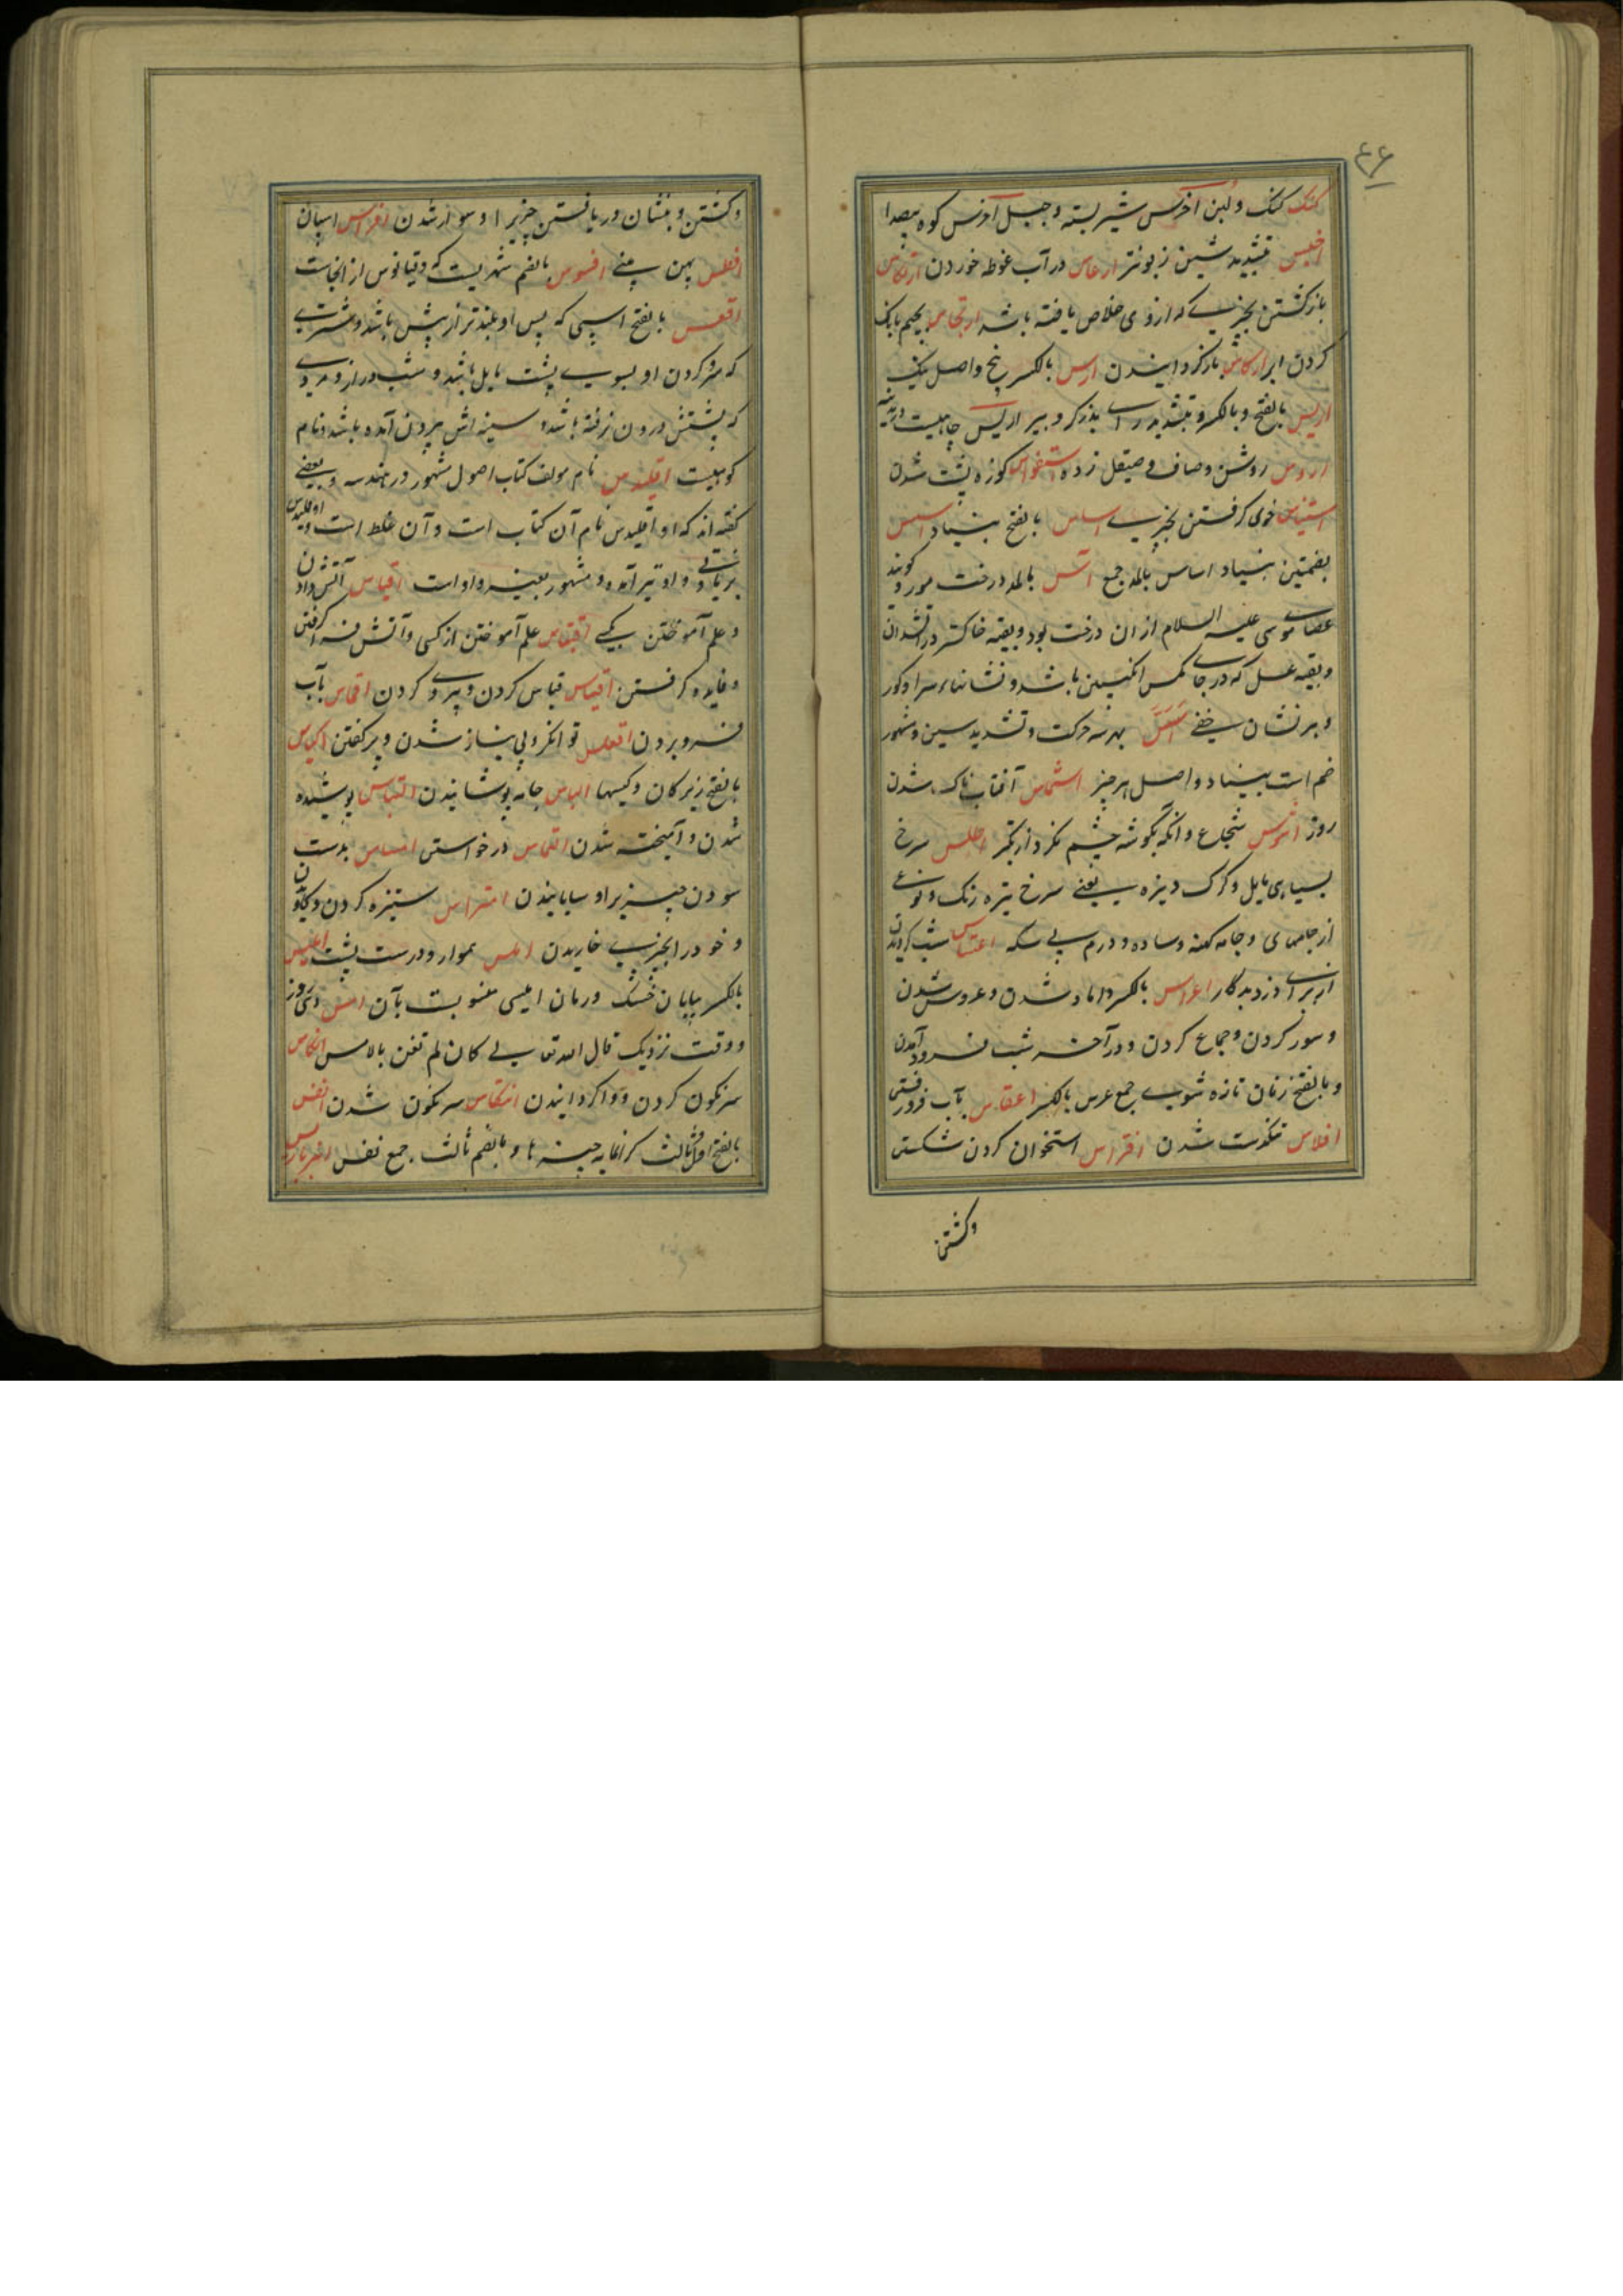 ۴۶
کنک کنک ولبن اخرس شیر بسته وجبل اخرس کوه بیصدا
اخس بتشدید سین زبونتر ارتماس در آب غوطه خوردن ارتکاس
بازکشتن بچیزی که ازوی خلاص یافته باشد ارتجاس بجیم بانک
کردن ابر ارکاس بازکردانیدن ارس بالکسر بیخ واصل نیک
اریس بالفتح وبالکسر وتشدید را بذرکر وبیر اریس چاهیست در مدینه
روشن وصاف وصیقل زده استقواس کوزه پشت شدن
استیناس خوی کرفتن بچیزی اساس بالفتح بنیاد اسس
بضمتین بنیاد اساس بالمد جمع آس بالمد درخت مورد کویند
عصای موسی علیه السلام از ان درخت بود وبقیه خاکستر در آتشدان
وبقیه عسل که در جای مکس انکبین باشد ونشانهاء سرا وکور
وهر نشان خفی اس بهر سه حرکت وتشدید سین ومشهور
ضم است بنیاد واصل هر چیز اشماس آفتاب ناک شدن
روز اشوس شجاع وانکه بکوشه چشم نکرد از تکبر اطلس سرخ
بسیاهی مایل وکرک دیزه یعنی سرخ تیره رنک ونوعی
از جامهای وجامه کهنه وساده ودرم بی سکه اعتساس شب کردیدن
از برای دزد وبدکار اعراس بالکسر داماد شدن وعروس شدن
وسور کردن وجماع کردن ودر آخر شب فرود آمدن
وبالفتح زنان تازه شوی جمع عرس بالکسر اعقاس بآب فرورفتن
افلاس تنکدست شدن افتراس استخوان کردن شکستن
وکشتن
وکشتن وبنشان دریافتن چیزیرا وسوار شدن افراس اسپان
افطس پهن بینی افسوس بالضم شهریست که دقیانوس از انجاست
اقعس بالفتح اسپی که پس او بلندتر از پیش باشد وشتری
که سر وکردن او بسوی پشت مایل باشد وشب دراز ومردی
که پشتش درون رفته باشد وسینه اش بیرون آمده باشد ونام
کوهیست اقلیدس نام مولف کتاب اصول مشهور در هندسه وبعضی
کفته اند که اقلیدس نام آن کتاب است وآن غلط است واوقلیدس
بزیادتی واو نیز آمده ومشهور بغیر واو است اقباس آتش دادن
وعلم آموختن بکسی اقتباس علم آموختن از کسی وآتش فرا کرفتن
وفایده کرفتن اقتیاس قیاس کردن وپیروی کردن اقماس بآب
فرو بردن اقعاس توانکر وبی نیاز شدن وبرکفتن اکیاس
بالفتح زیرکان وکیسها الباس جامه پوشانیدن التباس پوشیده
شدن وآمیخته شدن التماس درخواستن امساس بدست
سودن چیزیرا وسایانیدن امتراس ستیزه کردن وکاویدن
وخود را بچیزی خاریدن املس هموار ودرست پشت املیس
بالکسر بیابان خشک ورمان املیسی منسوب بآن امس دی روز
ووقت نزدیک قال الله تعالی کان لم تغن بالامس انکاس
سرنکون کردن وواکردانیدن انتکاس سرنکون شدن انفس
بالفتح اول وثالث کرانمایه چیزها وبالضم ثالث جمع نفس